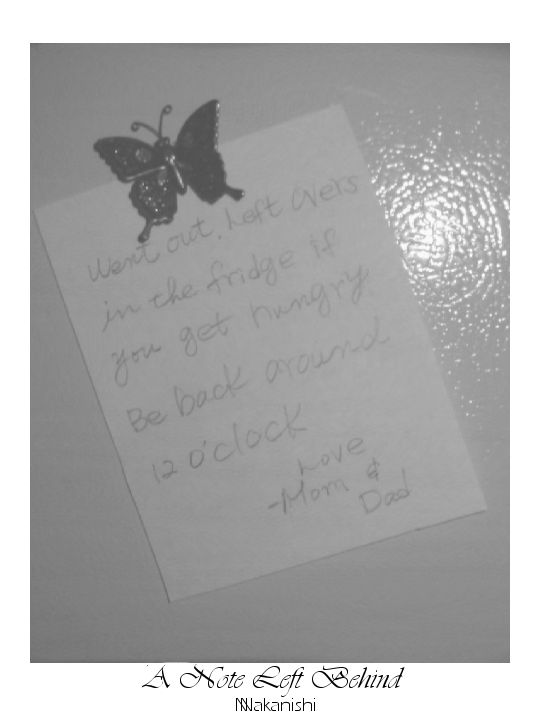 Went out. Left Overs
in the fridge if
you get hungry.
Be back around
12 o'clock
Love
-Mom &
Dad
A Note Left Behind
NNakanishi